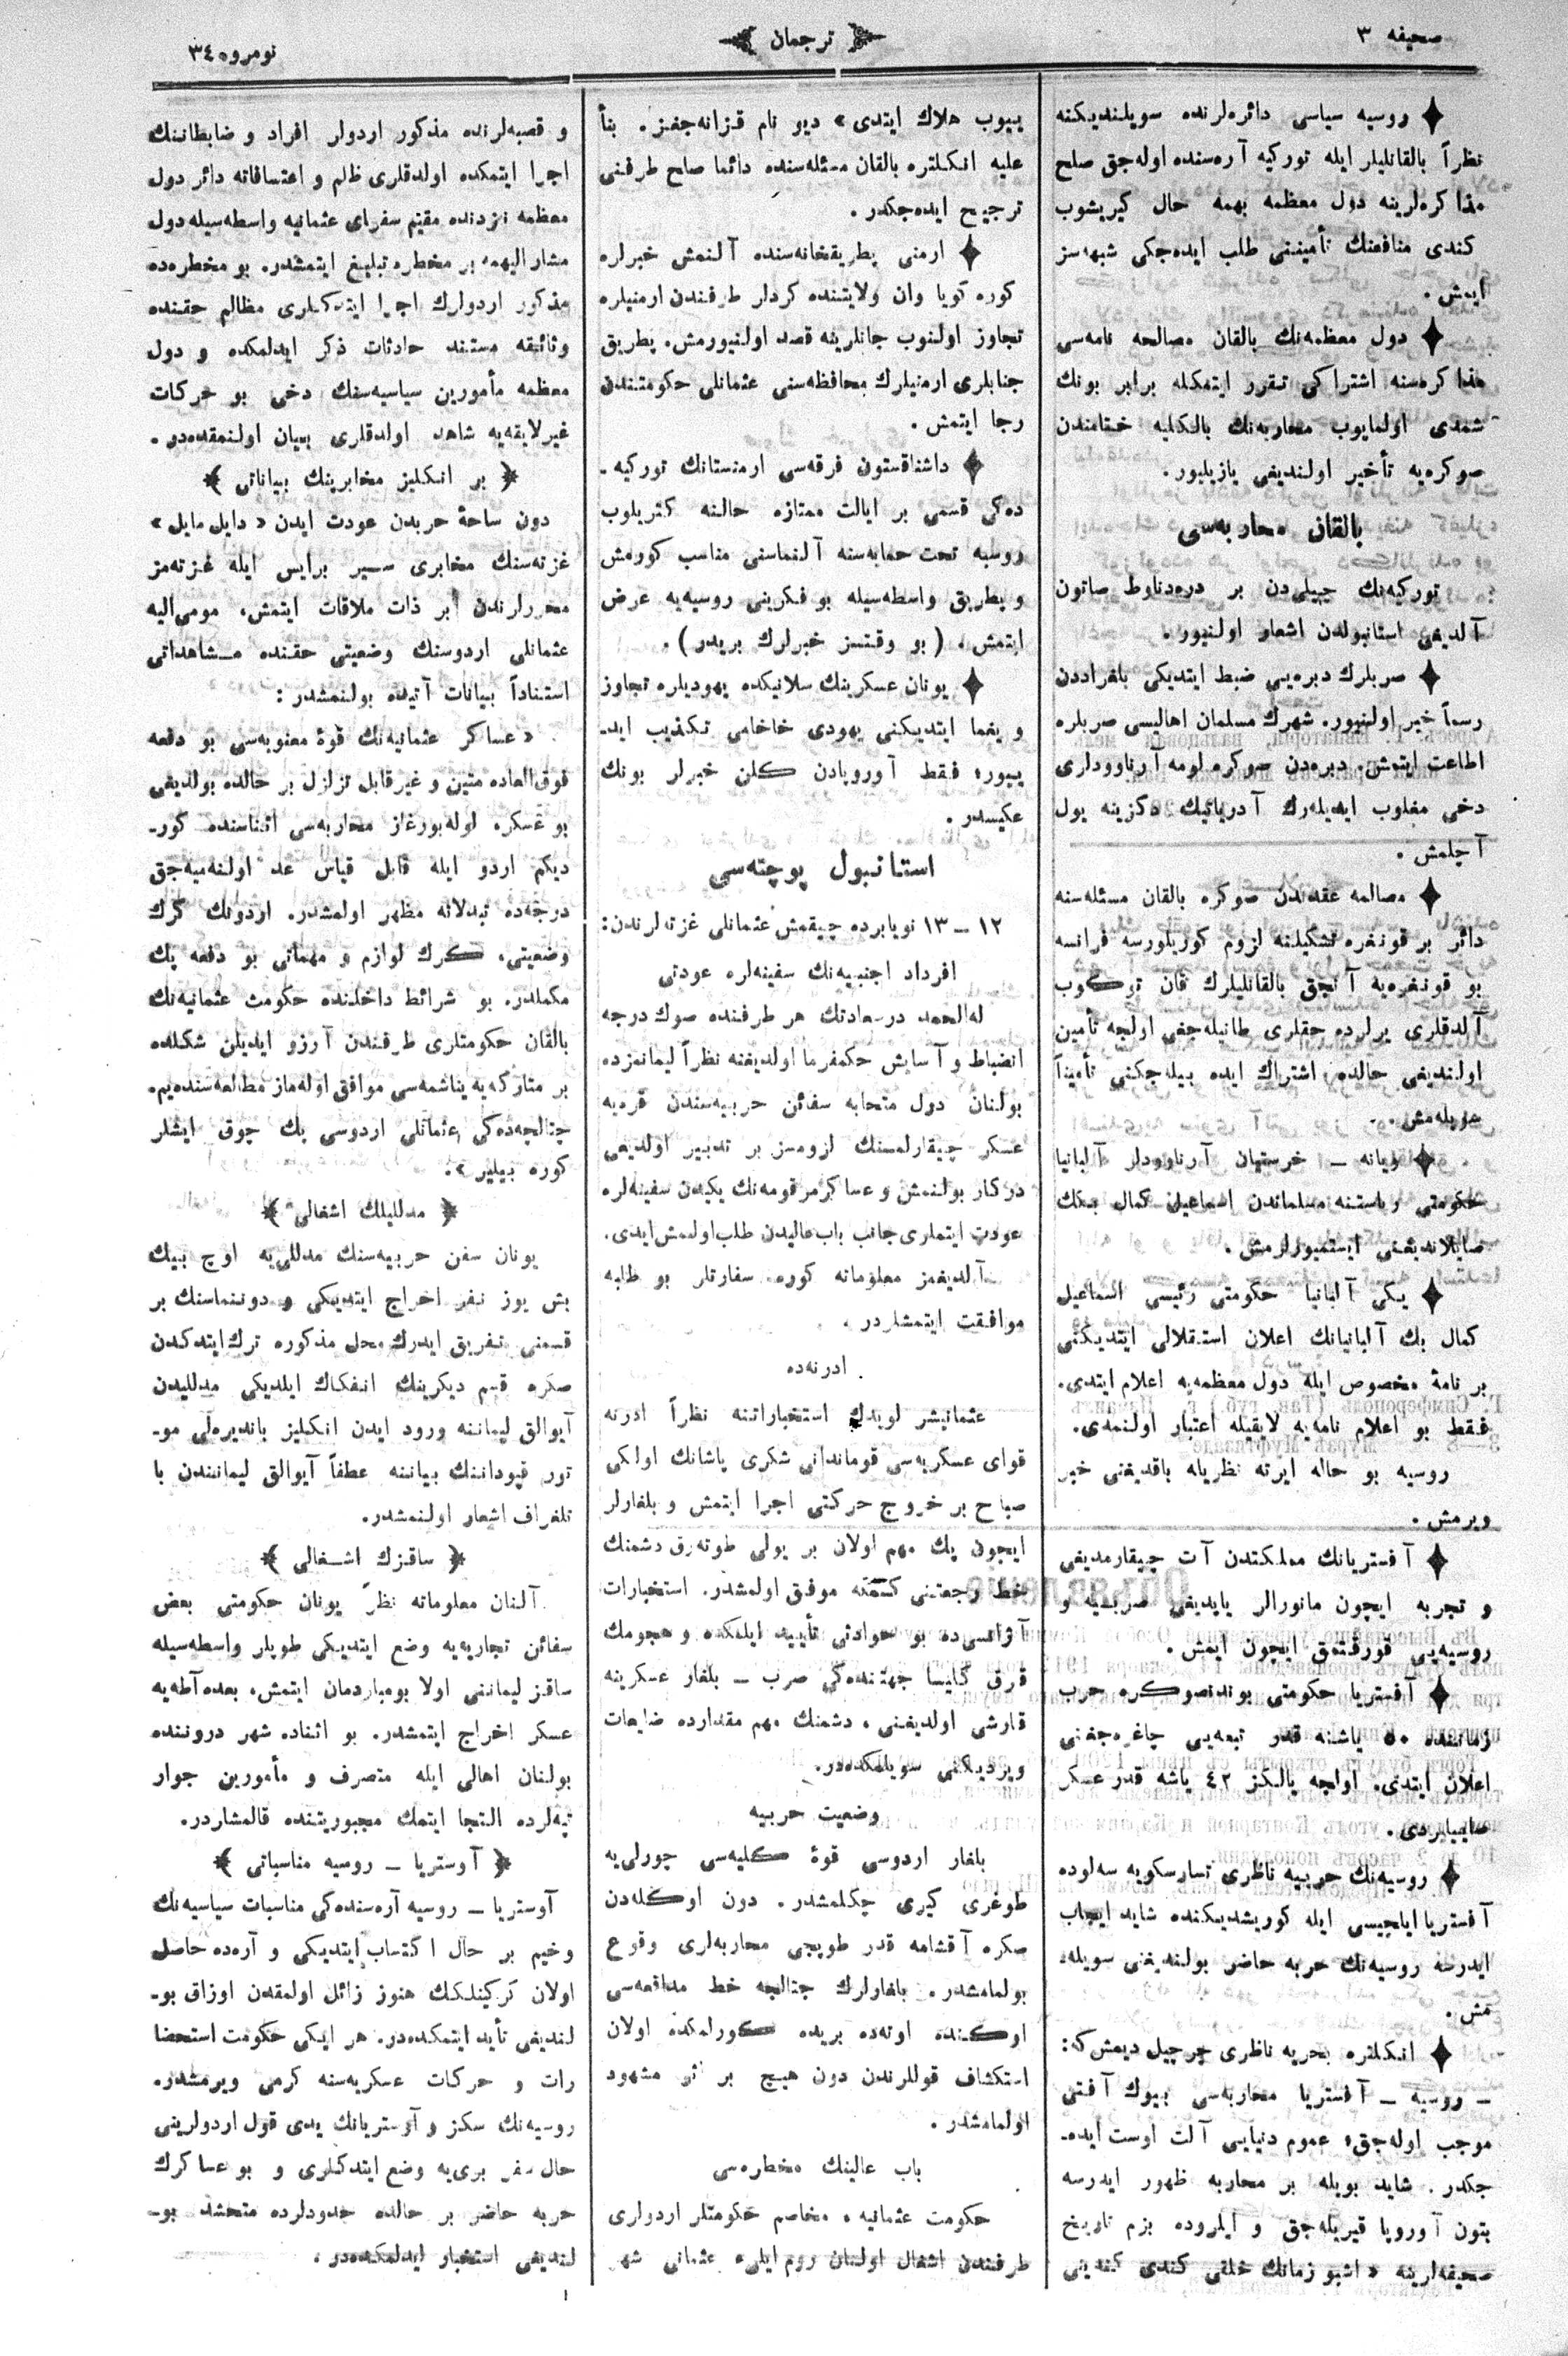 صحیفه ۳
ترجمان
نومرو ۳٤٥
روسیه سیاسی دائره‌لرنده سویلندیکنه
نظراً بالقانلیلر ایله تورکیه آره‌سنده اوله‌جق صلح
مذاکره‌لرینه دول معظمه بهمه حال کیریشوب
کندی منافعنك تأمیننی طلب ایده‌جکی شبهه‌سز
ایمش.
دول معظمه‌نك بالقان مصالحه نامه‌سی
مذاکره‌سنه اشتراکی تقرر ایتمکله برابر بونك
شمدی اولمایوب محاربه‌نك بالکلیه ختامندن
صوکره‌یه تأخیر اولندیغی یازیلیور.
بالقان محاربه‌سی
تورکیه‌نك چیلی‌دن بر دره‌دناوط صاتون
آلدیغی استانبولدن اشعار اولنیور.
صربلرك دبره‌یی ضبط ایتدیکی بلغراددن
رسماً خبر اولنیور. شهرك مسلمان اهالیسی صربلره
اطاعت ایتمش. دبره‌دن صوکره لومه آرناوودلری
دخی مغلوب ایدیله‌رك آدریاتیك دکزینه یول
آچلمش.
مصالحه عقدندن صوکره بالقان مسئله‌سنه
دائر بر قونغره تشکیلنه لزوم کوریلورسه فرانسه
بو قونغره‌یه آنجق بالقانلیلرك قان توکوب
آلدقلری یرلرده حقلری طانیله‌جغی اولجه تأمین
اولندیغی حالده اشتراك ایده بیله‌جکنی تأمیناً
سویله‌مش.
ویانه ــ خرستیان آرناوودلر آلبانیا
حکومتی ریاستنه مسلماندن اسماعیل کمال بکك
صایلاندیغنی ایستمیورلرمش.
یکی آلبانیا حکومتی رئیسی اسماعیل
کمال بك آلبانیانك اعلان استقلالی ایتدیکنی
بر نامۀ مخصوص ایله دول معظمه‌یه اعلام ایتدی.
فقط بو اعلام نامه‌یه لایقیله اعتبار اولنمه‌ی.
روسیه بو حاله ایرته نظریله باقدیغنی خبر
ویرمش.
آفستریانك مملکتدن آت چیقارمدیغی
و تجربه ایچون مانورالر یاپدیغی صربیه و
روسیه‌یی قورقتمق ایچون ایمش.
آفستریا حکومتی بوندنصوکره حرب
زماننده ٥٠ یاشنه قدر تبعه‌یی چاغره‌جغنی
اعلان ایتدی. اولجه یالکز ٤٢ یاشه قدر عسکر
صاییلیردی.
روسیه‌نك حربیه ناظری تسارسکویه سه‌لوده
آفستریا ایلچیسی ایله کوریشدیکنده شاید ایجاب
ایدرسه روسیه‌نك حربه حاضر بولندیغنی سویله‌
مش.
انکلتره بحریه ناظری چرچیل دیمش که:
ــ روسیه ــ آفستریا محاربه‌سی بیوك آفتی
موجب اوله‌جق، عموم دنیایی آلت اوست ایده‌ـ
جکدر. شاید بویله بر محاربه ظهور ایدرسه
بتون آوروپا قیریله‌جق و ایلروده بزم تاریخ
صحیفه‌لرینه «اشبو زمانك خلقی کندی کندینی
ییوب هلاك ایتدی» دیو نام قزانه‌جغز. بنأ
علیه انکلتره بالقان مسئله‌سنده دائما صلح طرفنی
ترجیح ایده‌جکدر.
ارمنی پطریقخانه‌سنده آلنمش خبرلره
کوره کویا وان ولایتنده کردلر طرفندن ارمنیلره
تجاوز اولنوب جانلرینه قصد اولنیورمش. پطریق
جنابلری ارمنیلرك محافظه‌سنی عثمانلی حکومتندن
رجا ایتمش.
داشناقستون فرقه‌سی ارمنستانك تورکیه‌ـ
ده‌کی قسمی بر ایالت ممتازه حالنه کتریلوب
روسیه تحت حمایه‌سنه آلنماسنی مناسب کورمش
و پطریق واسطه‌سیله بو فکرینی روسیه‌یه عرض
ایتمش. (بو وقتسز خبرلرك بریدر).
یونان عسکرینك سلانیکده یهودیلره تجاوز
و یغما ایتدیکنی یهودی خاخامی تکذیب ایدـ
ییور؛ فقط آوروپادن کلن خبرلر بونك
عکسیدر.
استانبول پوچته‌سی
١٢ ــ ١٣ نویابرده چیقمش عثمانلی غزته‌لرندن:
افراد اجنبیه‌نك سفینه‌لره عودتی
له‌الحمد درسعادتك هر طرفنده صوك درجه
انضباط و آسایش حکمفرما اولدیغنه نظراً لیمانمزده
بولنان دول متحابه سفائن حربیه‌سندن قره‌یه
عسکر چیقارلمسنك لزومسز بر تدبیر اولدیغی
درکار بولنمش و عساکر مرقومه‌نك یکیدن سفینه‌لره
عودت ایتملری جانب باب‌عالیدن طلب اولنمش ایدی.
آلدیغمز معلوماته کوره سفارتلر بو طلبه
موافقت ایتمشلردر.
ادرنه‌ده
عثمانیشر لویدك استخباراتنه نظراً ادرنه
قوای عسکریه‌سی قوماندانی شکری پاشانك اولکی
صباح بر خروج حرکتی اجرا ایتمش و بلغارلر
ایچون پك مهم اولان بر یولی طوته‌رق دشمنك
خط رجعتنی کسمکه موفق اولمشدر. استخبارات
آژانسی‌ده بو حوادثی تأیید ایلمکده و هجومك
قرق کلیسا جهتنده‌کی صرب ــ بلغار عسکرینه
قارشی اولدیغنی، دشمنك مهم مقدارده ضایعات
ویردیکنی سویلمکده‌در.
وضعیت حربیه
بلغار اردوسی قوۀ کلیه‌سی چورلی‌یه
طوغری کیری چکلمشدر. دون اوکله‌دن
صکره آقشامه قدر طوپجی محاربه‌لری وقوع
بولمامشدر. بلغارلرك چتالجه خط مدافعه‌سی
اوکنده اوته‌ده بریده کورلمکده اولان
استکشاف قوللرندن دون هیچ بر اثر مشهود
اولمامشدر.
باب عالینك مخطره‌سی
حکومت عثمانیه، مخاصم حکومتلر اردولری
طرفندن اشغال اولنان روم ایلی‌ء عثمانی شهر
و قصبه‌لرنده مذکور اردولر افراد و ضابطاننك
اجرا ایتمکده اولدقلری ظلم و اعتسافاته دائر دول
معظمه نزدنده مقیم سفرای عثمانیه واسطه‌سیله دول
مشار الیهمه بر مخطره تبلیغ ایتمشدر. بو مخطره‌ده
مذکور اردولرك اجرا ایتدکلری مظالم حقنده
وثائقه مستند حادثات ذکر ایدلمکده و دول
معظمه مأمورین سیاسیه‌سنك دخی بو حرکات
غیرلایقه‌یه شاهد اولدقلری بیان اولنمقده‌در.
﴿ بر انکلیز مخابرینك بیاناتی ﴾
دون ساحۀ حربدن عودت ایدن «دایل مایل»
غزته‌سنك مخابری سیر برایس ایله غزته‌مز
محررلرندن بر ذات ملاقات ایتمش، مومی‌الیه
عثمانلی اردوسنك وضعیتی حقنده مشاهداتی
استناداً بیانات آتیده بولنمشدر:
«عساکر عثمانیه‌نك قوۀ معنویه‌سی بو دفعه
فوق‌العاده متین و غیرقابل تزلزل بر حالده بولدیغی
بو عسکر، لوله‌بورغاز محاربه‌سی اثناسنده کورـ
دیکم اردو ایله قابل قیاس عد اولنه‌میه‌جق
درجه‌ده تبدلاته مظهر اولمشدر. اردونك کرك
وضعیتی، کرك لوازم و مهماتی بو دفعه پك
مکملدر. بو شرائط داخلنده حکومت عثمانیه‌نك
بالقان حکومتلری طرفندن آرزو ایدیلن شکلده
بر متارکه‌یه یناشمه‌سی موافق اوله‌ماز مطالعه‌سنده‌یم.
چتالجه‌ده‌کی عثمانلی اردوسی پك چوق ایشلر
کوره بیلیر».
﴿ مدللینك اشغالی ﴾
یونان سفن حربیه‌سنك مدللی‌یه اوچ بیك
بش یوز نفر اخراج ایتدیکی و دوننماسنك بر
قسمنی تفریق ایدرك محل مذکوره ترك ایتدکدن
صکره قسم دیکرینك انفکاك ایلدیکی مدللیدن
آیوالق لیماننه ورود ایدن انکلیز باندیره‌لی موـ
تور قپوداننك بیاننه عطفاً آیوالق لیمانندن با
تلغراف اشعار اولنمشدر.
﴿ ساقزك اشغالی ﴾
آلنان معلوماته نظراً یونان حکومتی بعض
سفائن تجاریه‌یه وضع ایتدیکی طوپلر واسطه‌سیله
ساقز لیماننی اولا بومباردمان ایتمش، بعده آطه‌یه
عسکر اخراج ایتمشدر. بو اثناده شهر دروننده
بولنان اهالی ایله متصرف و مأمورین جوار
تپه‌لرده التجا ایتمك مجبوریتنده قالمشلردر.
﴿ آوستریا ــ روسیه مناسباتی ﴾
آوستریا ــ روسیه آره‌سنده‌کی مناسبات سیاسیه‌نك
وخیم بر حال اکتساب ایتدیکی و آره‌ده حاصل
اولان کرکینلکك هنوز زائل اولمقدن اوزاق بوـ
لندیغی تأید ایتمکده‌در. هر ایکی حکومت استحضا
رات و حرکات عسکریه‌سنه کرمی ویرمشدر.
روسیه‌نك سکز و آوستریانك یدی قول اردولرینی
حال سفر بری‌یه وضع ایتدکلری و بو عساکرك
حربه حاضر بر حالده حدودلرده متحشد بوـ
لندیغی استخبار ایدلمکده‌در.